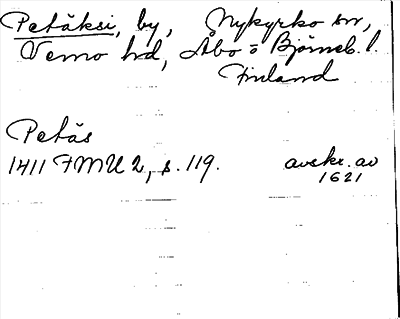 Petäksi, by, Nykyrko sn,
Vemo hd, Åbo o Björneb. l.
Finland
Petäs
1411 FMU 2, s. 119. avskr. av
1621